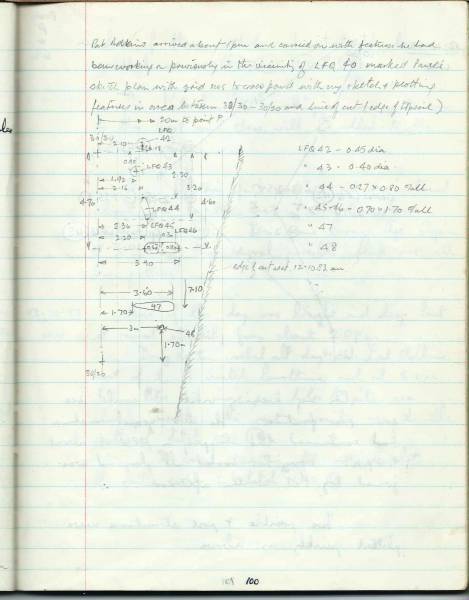 Pat Robbins arrived about 1pm and carried on with features he had
been working on previously in the vicinity of LFQ 40. marked Paul's
site plan with grid nos to correspond with my sketch & plotting
features in area between 30/30 - 30/20 and line of cut (edge of topsoil)
20m to point P
LFQ
30/30
2.10
42
LFQ 42 - 0.45 dia
LFQ 43
" 43 - 0.40 dia
1.92
2.30
2.16
3.20
" 44 - 0.27 x 0.80 tall
4.70
LFQ 44
4.60
" 45-46 - 0.70 x 1.70 tall
2.36
LFQ 45
" 47
2.20
LFQ 46
" 48
3.90
edge of cut west. 12.10.83 am
3.60
7.10
1.70
47
3m
48
1.70m
30/20
101 100